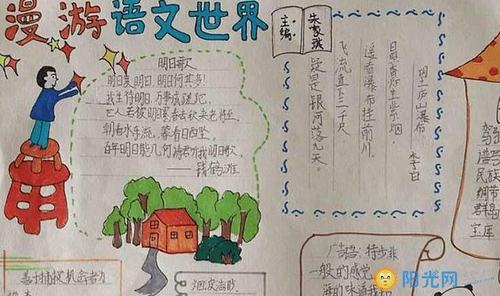 漫游语文世界
主编
朱家琪
明日歌
明日复明日,明日何其多!
我生待明日,万事成蹉跎。
世人若被明日累,春去秋来老将至。
朝看水东流,暮看日西坠。
百年明日能几何?请君听我明日歌。
——钱鹤滩
望庐山瀑布
李白
日照香炉生紫烟,
遥看瀑布挂前川。
飞流直下三千尺,
疑是银河落九天。
民族
群岛
宝库
广告语:特步非
一般的感觉
阳光网